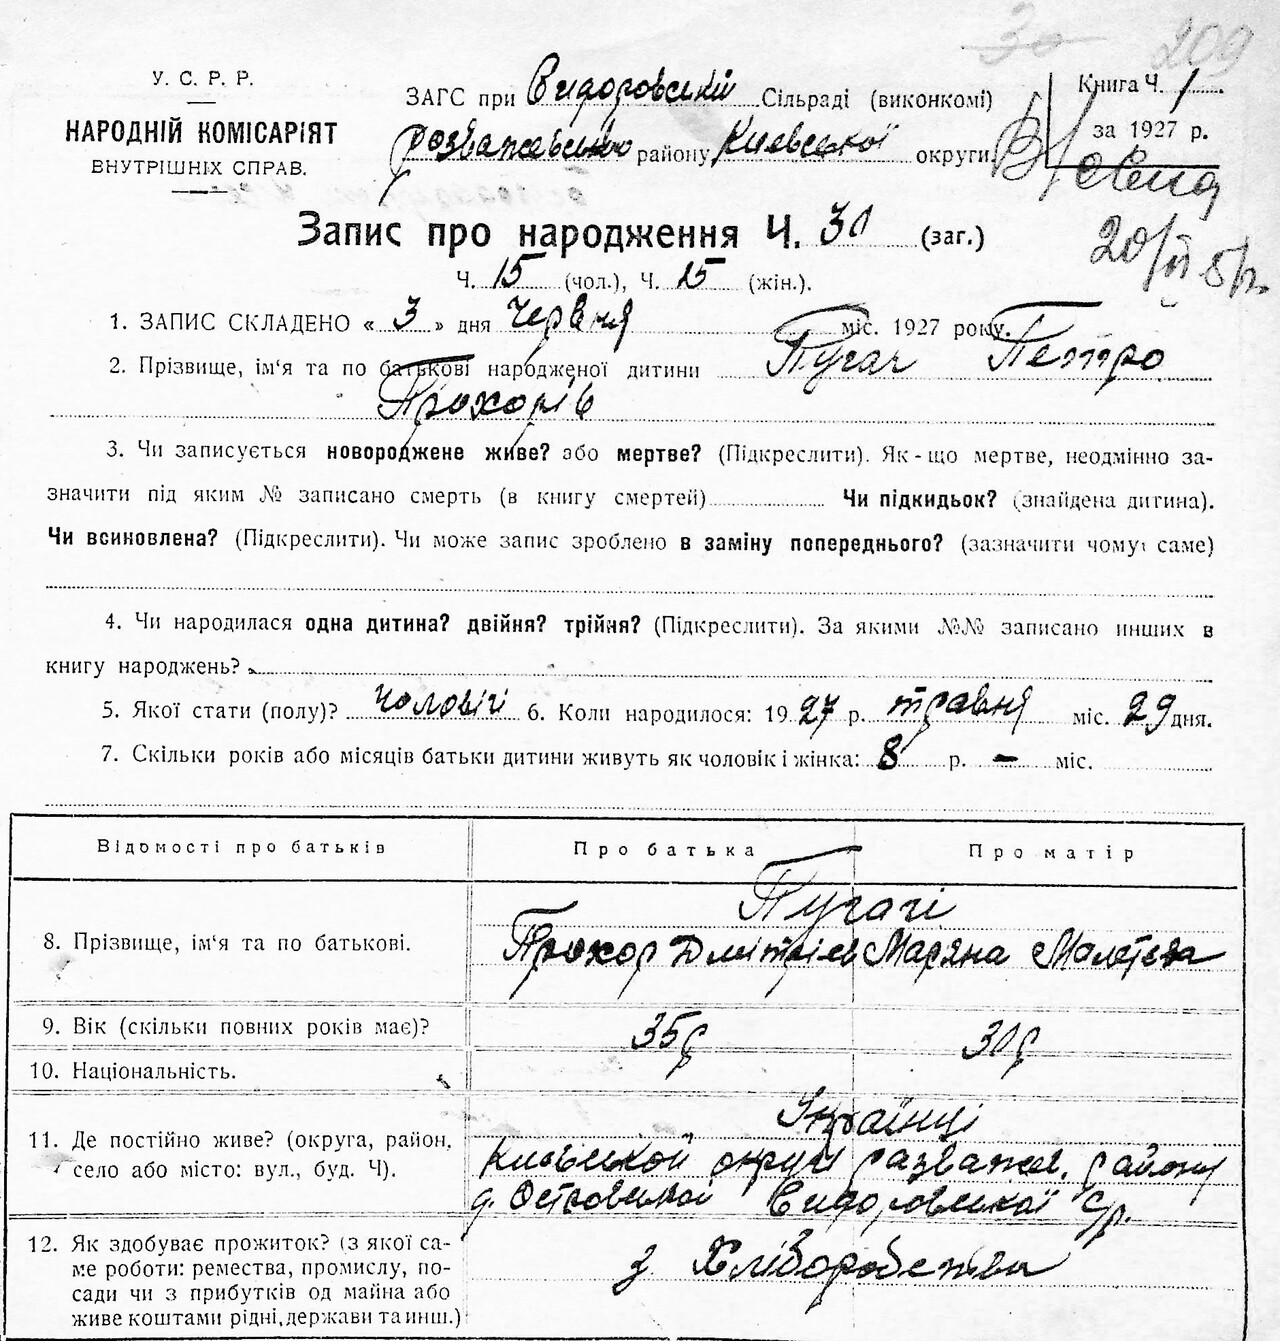 30 209
У. С. Р. Р.
НАРОДНІЙ КОМІСАРІЯТ
ВНУТРІШНІХ СПРАВ.
ЗАГС при Сидоровській Сільраді (виконкомі)
розважевського району Київської округи.
Книга Ч. 1
за 1927 р.
Запис про народження Ч. 30 (заг.)
Ч. 15 (чол.), Ч. 15 (жін.).
1. ЗАПИС СКЛАДЕНО « 3 » дня Червня міс. 1927 року.
2. Прізвище, ім‘я та по батькові народженої дитини Пугач Петро
Прохорів
3. Чи записується новороджене живе? або мертве? (Підкреслити). Як-що мертве, неодмінно за-
значити під яким № записано смерть (в книгу смертей) Чи підкидьок? (знайдена дитина).
Чи всиновлена? (Підкреслити). Чи може запис зроблено в заміну попереднього? (зазначити чому саме)
4. Чи народилася одна дитина? двійня? трійня? (Підкреслити). За якими №№ записано инших в
книгу народжень?
5. Якої стати (полу)? чоловічі 6. Коли народилося: 1927 р. травня міс. 29 дня.
7. Скільки років або місяців батьки дитини живуть як чоловік і жінка: 8 р. – міс.
Відомості про батьків Про батька Про матір
Пугачі
8. Прізвище, ім‘я та по батькові. Прохор Дмітрієв Маряна
9. Вік (скільки повних років має)? 35р 30р
10. Національність.
Українці
11. Де постійно живе? (округа, район, Київської округи розважев. району
село або місто: вул., буд. Ч). д. Сидоровської с/р.
12. Як здобуває прожиток? (з якої са- з Хліборобства
ме роботи: ремества, промислу, по-
сади чи з прибутків од майна або
живе коштами рідні, держави та инш.)